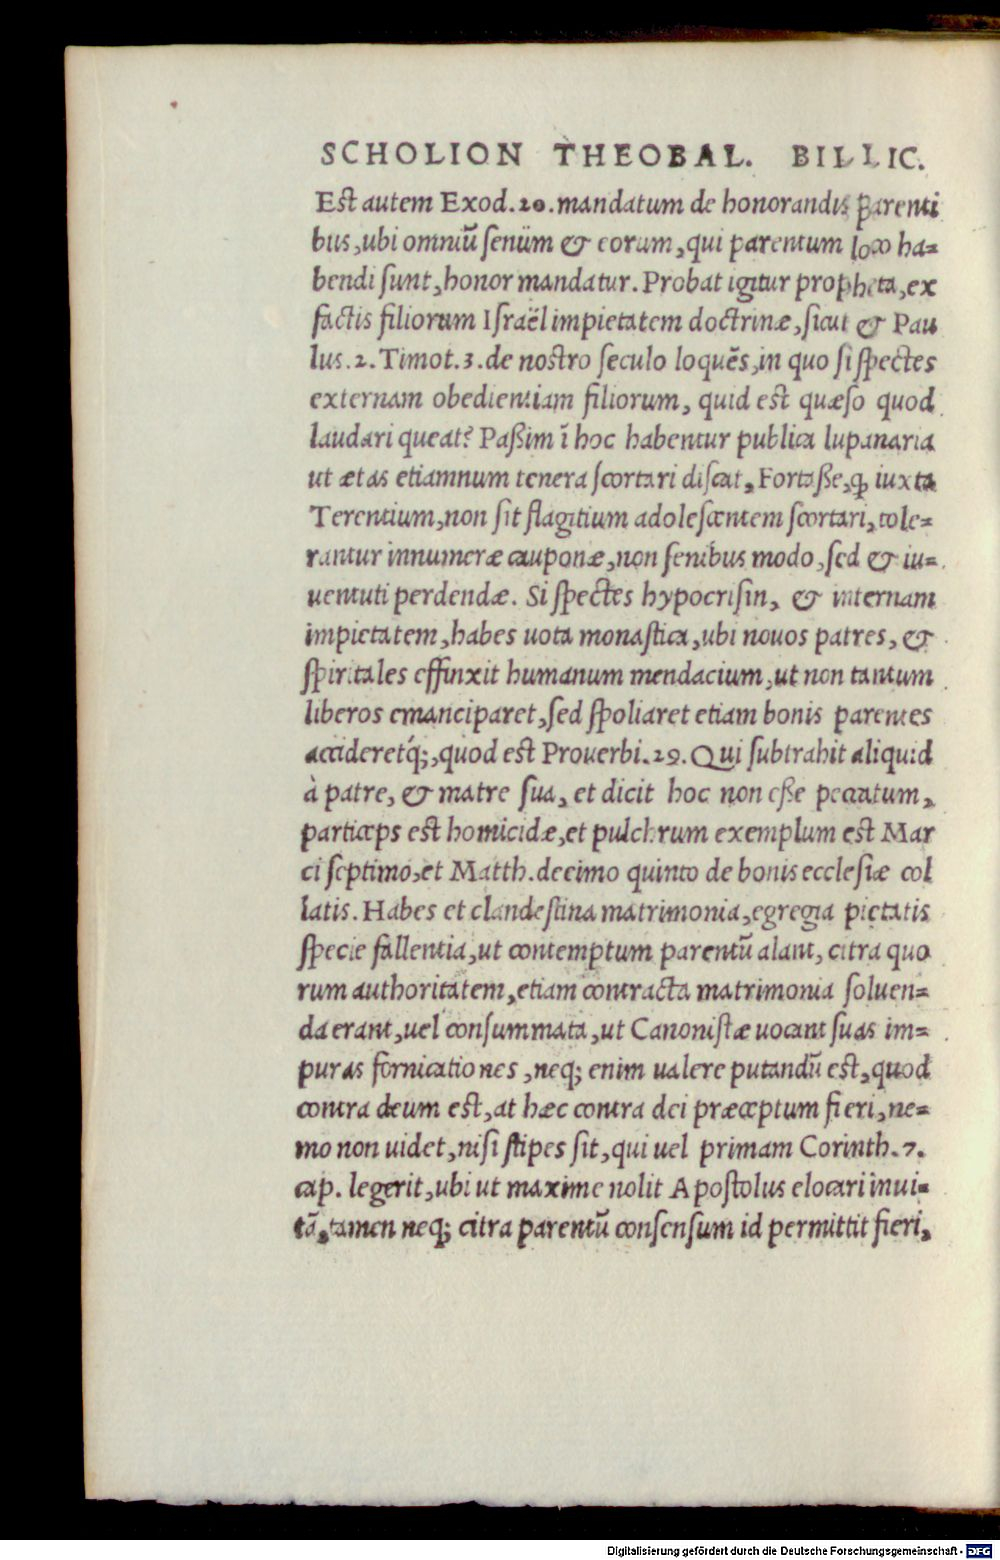 SCHOLION THEOBAL. BILLIC.
Est autem Exod.20.mandatum de honorandis parenti
bus,ubi omniũ senũm & eorum,qui parentum loco ha=
bendi sunt,honor mandatur. Probat igitur propheta,ex
factis filiorum Israël impietatem doctrinæ,sicut & Pau
lus.2.Timot.3.de nostro seculo loquẽs,in quo si spectes
externam obedientiam filiorum, quid est quæso quod
laudari queat? Paßim ĩ hoc habentur publica lupanaria
ut ætas etiamnum tenera scortari discat, Fortaße,ꝙ iuxta
Terentium,non sit flagitium adolescentem scortari,tole=
rantur innumeræ cauponæ,non senibus modo,sed & iu=
uentuti perdendæ. Si spectes hypocrisin, & internam
impietatem,habes uota monastica,ubi nouos patres, &
spiritales effinxit humanum mendacium,ut non tantum
liberos emanciparet,sed spoliaret etiam bonis parentes
accideretq́;,quod est Prouerbi.29.Qui subtrahit aliquid
à patre, & matre sua, et dicit hoc non eße peccatum,
particeps est homicidæ,et pulchrum exemplum est Mar
ci septimo,et Matth.decimo quinto de bonis ecclesiæ col
latis. Habes et clandestina matrimonia,egregia pietatis
specie fallentia,ut contemptum parentũ alant, citra quo
rum authoritatem,etiam contracta matrimonia soluen=
da erant,uel consummata,ut Canonistæ uocant suas im=
puras fornicationes,neq; enim ualere putandũ est,quod
contra deum est,at hæc contra dei præceptum fieri,ne=
mo non uidet,nisi stipes sit,qui uel primam Corinth.7.
cap. legerit,ubi ut maxime nolit Apostolus elocari inui=
tã,tamen neq; citra parentũ consensum id permittit fieri,
Digitalisierung gefördert durch die Deutsche Forschungsgemeinschaft - DFG